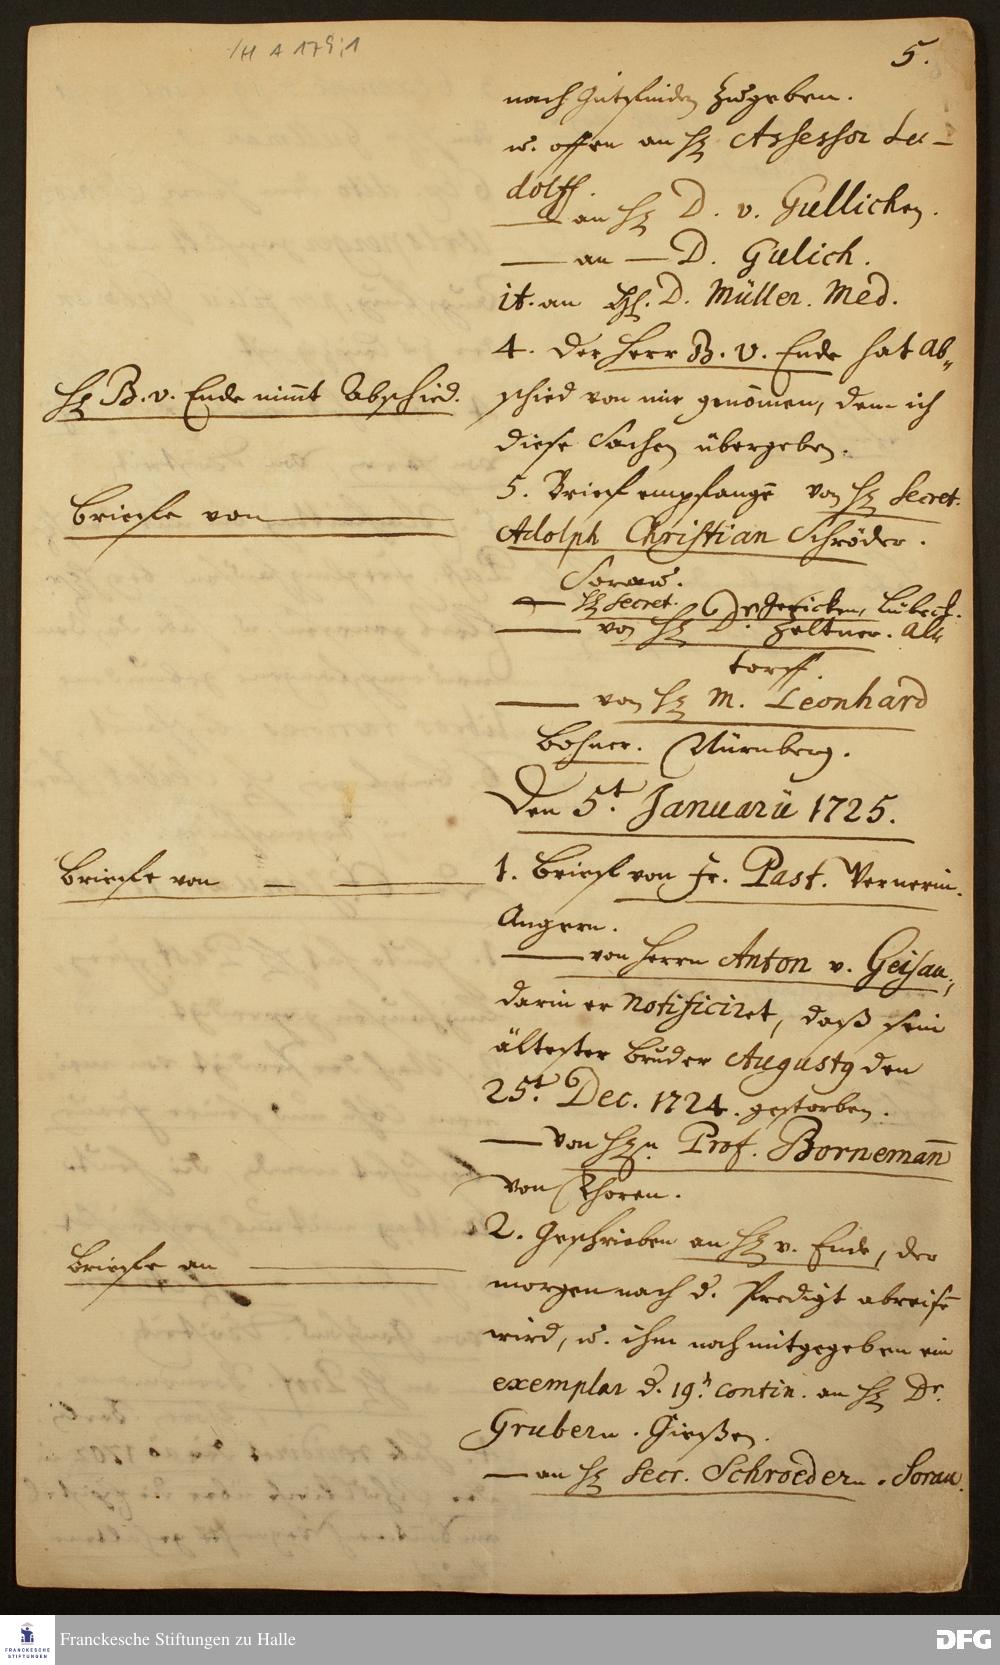 /H A 179:1
5.
nach Gutfinden zugeben.
u. offen an H. Assessor Lu-
dolff.
— an H. D. v. Gullichen.
— an — D. Gulich.
it. an Hl. D. Müller. Med.
4. Der Herr B. v. Ende hat Ab-
schied von mir genom̄en, dem ich
diese Sachen übergeben.
H. B. v. Ende nim̄t Abschied.
5. Brieff empfangē von H. Secret.
Adolph Christian Schröder.
Sorau.
Brieffe von
— H. Secret. Dedericken, Lübeck.
— von H. D. Zeltner. Alt
torff.
— von H. M. Leonhard
Bohner. Nürnberg.
Den 5t. Januarii 1725.
Brieffe von — —
1. Brieff von Fr. Past. Vernerin.
Angern.
— von Herrn Anton v. Geisau,
darin er notificiret, daß sein
ältester Bruder Augustg den
25t. Dec. 1724. gestorben.
— von H.n. Prof. Bornemañ
von Thoren.
2. Geschrieben an H. v. Ende, der
Brieffe an
morgen nach d. Predigt abreisē
wird, u. ihm noch mitgegeben ein
exemplar d. 19.n contin. an H. Dr.
Grubern. Gießen.
— an H. Secr. Schroedern. Sorau.
FRANCKESCHE
STIFTUNGEN
Franckesche Stiftungen zu Halle
DFG